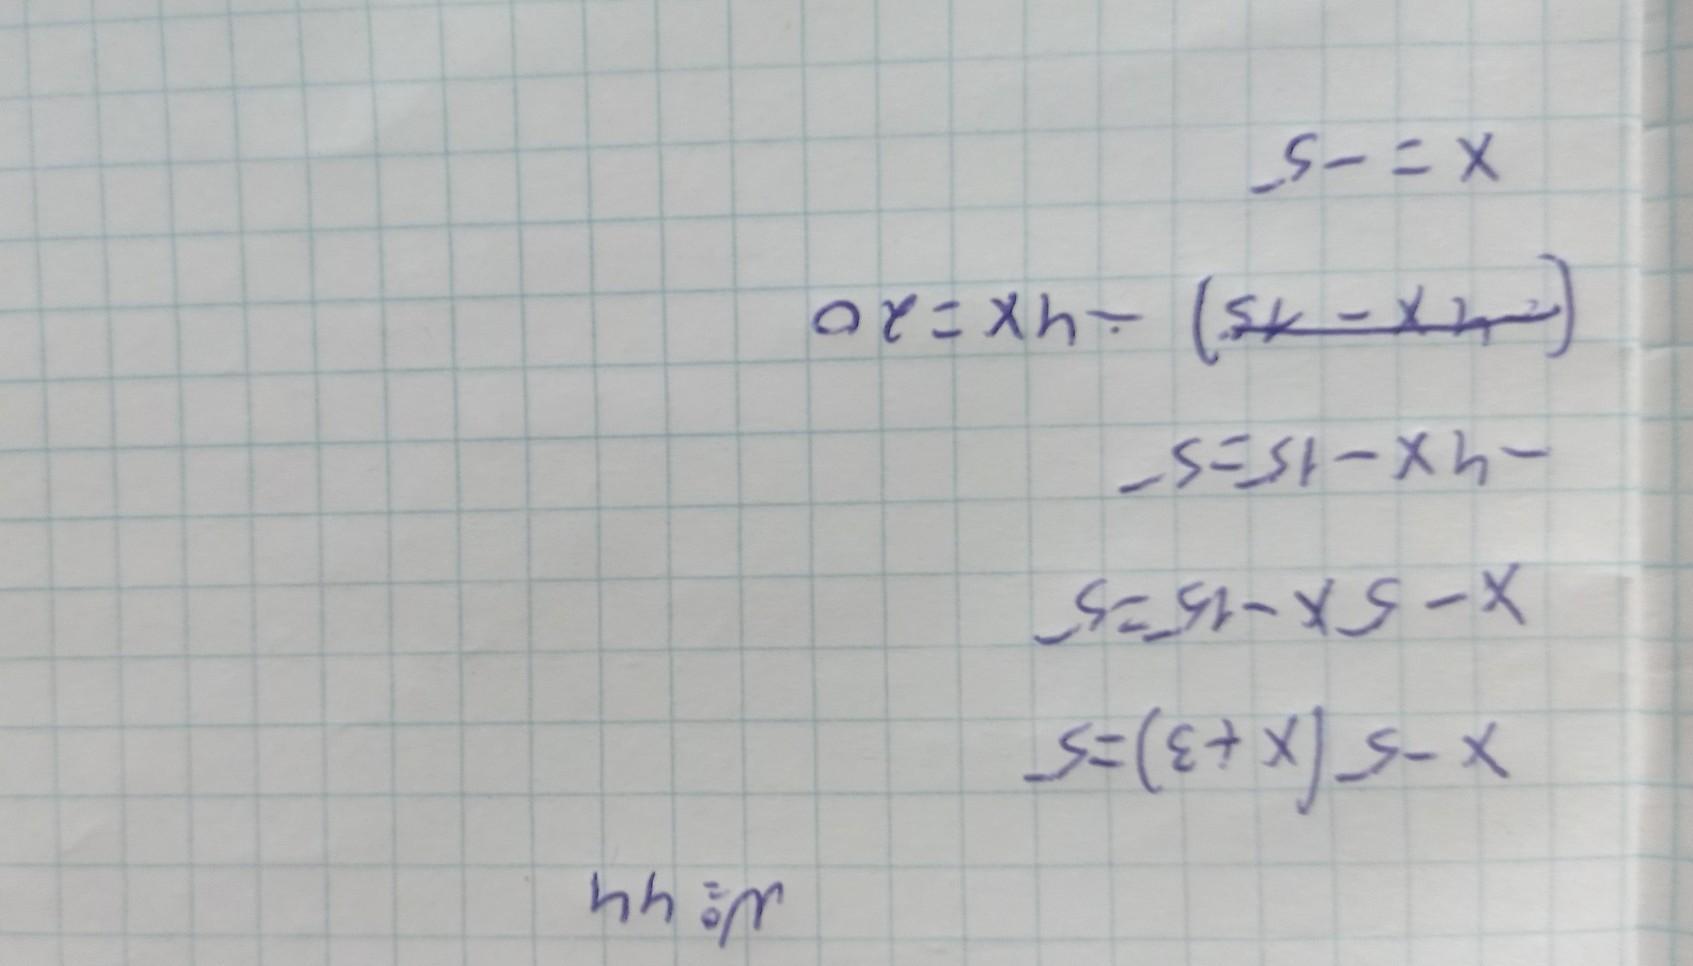 № 44
x - 5(x + 3) = 5
x - 5x - 15 = 5
- 4x - 15 = 5
(- 4x - 15) - 4x = 20
x = - 5